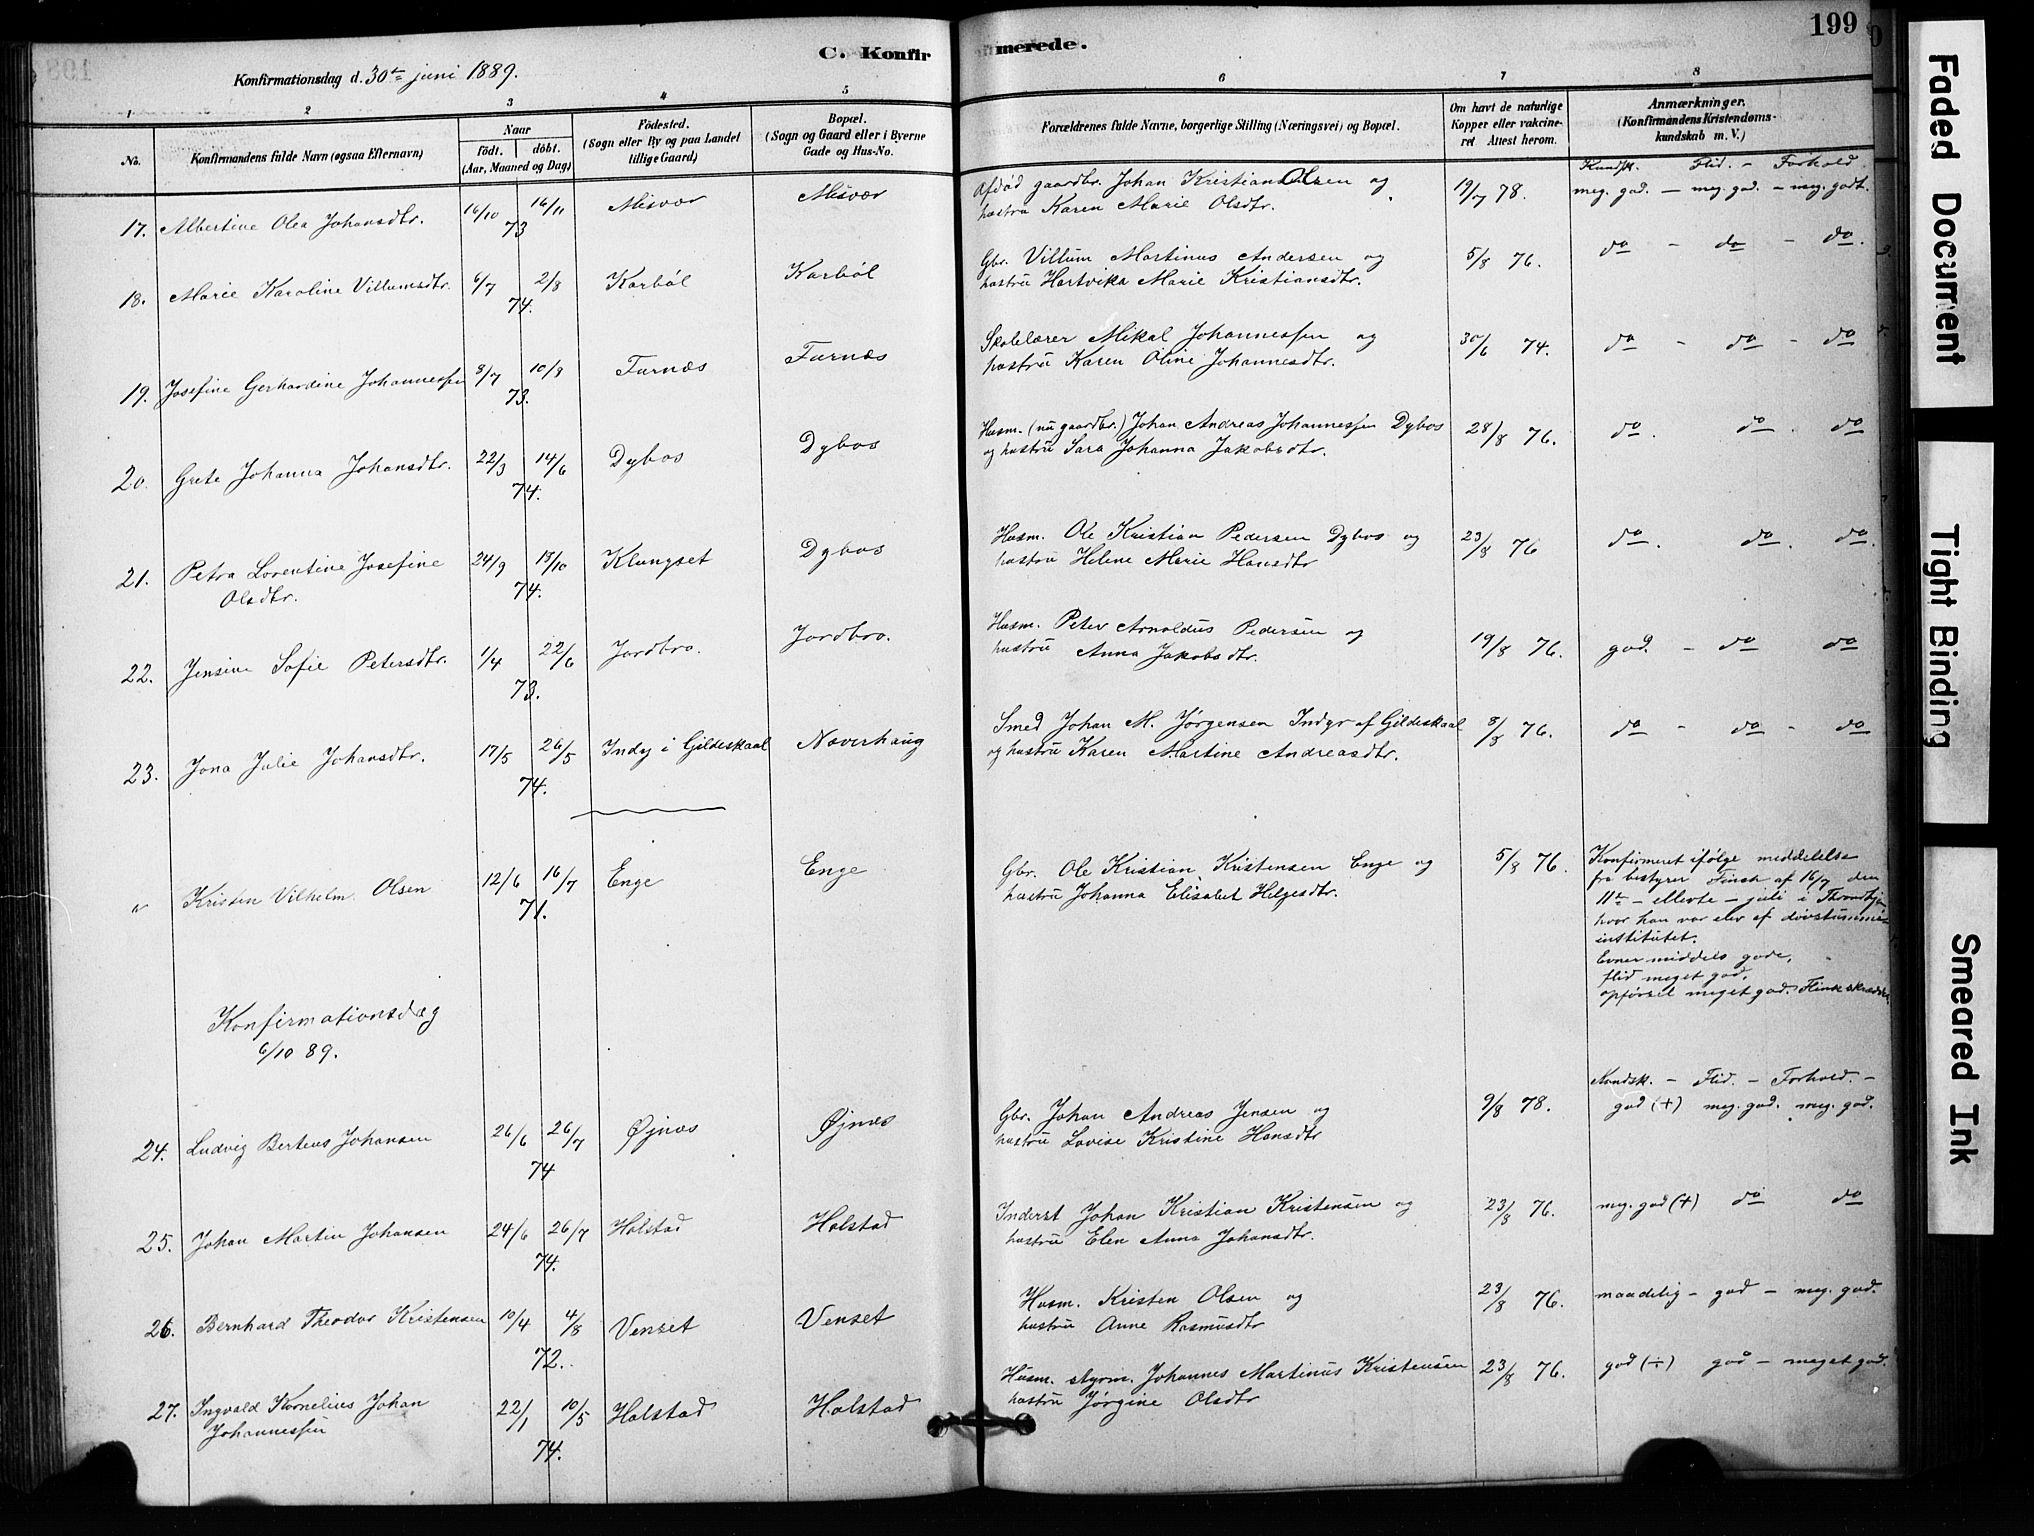 199
C. Konfirmerede.
Konfirmationsdag d. 30te juni 1889.
1 2 3 4 5 6 7 8
No.
Konfirmandens fulde Navn (ogsaa Efternavn)
Naar
født. døbt.
(Aar, Maaned og Dag)
Fødested.
(Sogn eller By og paa Landet
tillige Gaard)
Bopæl.
(Sogn og Gaard eller i Byerne
Gade og Hus-No.
Forældrenes fulde Navne, borgerlige Stilling (Næringsvei) og Bopæl.
Om havt de naturlige
Kopper eller vakcine-
ret Attest herom.
Anmærkninger.
(Konfirmandens Kristendoms-
kundskab m. V.)
Kundsk. Flid. - Forhold
17. Albertine Olea Johansdtr. 16/10 16/11 73 Misvær Misvær Afdød gaardbr. Johan Kristian Olsen og 19/7 78. meg. god. - meg. god. - meg. godt.
hustru Karen Marie Olsdtr.
18. Marie Karoline Villumsdtr. 6/7 2/8 74. Karbøl Karbøl Gbr. Villum Martinus Andersen og 5/8 76. do - do - do.
hustru Hartvika Marie Kristiansdtr.
19. Josefine Gerhardine Johannessen 8/7 10/8 73. Furnæs Furnæs Skolelærer Mikal Johannessen og 30/6 74. do - do - do
hustru Karen Oline Johannesdtr.
20. Grete Johanna Johansdtr. 22/3 14/6 74. Dybos Dybos Husm. (nu gaardbr.) Johan Andreas Johannessen Dybos 28/8 76. do. do. do
og hustru Sara Johanna Jakobsdtr.
21. Petra Lorentine Josefine 24/9 18/10 74. Klungset Dybos Husm. Ole Kristian Pedersen Dybos og 23/8 76 do. do. do.
Olsdtr. hustru Helene Marie Hansdtr
22. Jensine Sofie Petersdtr. 1/4 22/6 73. Jordbro. Jordbro. Husm. Peter Arnoldus Pedersen og 19/8 76. god. - do do
hustru Anna Jakobsdtr.
23. Jona Julie Johansdtr. 17/5 26/5 74. Indy i Gildeskaal Naverhaug Smed Johan M. Jørgensen Indyr af Gildeskaal 8/8 76. do - do - do
og hustru Karen Martine Andreasdtr.
" Kristen Vilhelm Olsen 12/6 16/7 71. Enge Enge Gbr. Ole Kristian Kristensen Enge og 5/8 76.
hustru Johanna Elisabet Helgesdtr.
Konfirmeret ifølge meddelelse
fra bestyrer Finch af 16/7 den
11te - ellevte - juli i Throndhjem
hvor han var elev af døvstumme-
institutet.
Evner middels gode,
flid meget god,
opførsel meget god. Flink skrædder
Konfirmationsdag
6/10 89.
Kundsk. - Flid. - Forhold. -
24. Ludvig Berteus Johansen 26/6 26/7 74 Øjnes Øjnes Gbr. Johan Andreas Jensen og 9/8 78. god (+) meg. god. meg. god.
hustru Lovise Kristine Hansdtr
25. Johan Martin Johansen 24/6 26/7 74. Holstad Holstad Inderst Johan Kristian Kristensen og 23/8 76. meg. god (+) do do
hustru Elen Anna Johansdtr.
26. Bernhard Theodor Kristensen 10/4 4/8 72. Venset Venset Husm. Kristen Olsen og 23/8 76. maadelig - god - meg. god.
hustru Anne Rasmusdtr
27. Ingvald Kornelius Johan 22/1 10/5 74. Holstad Holstad Husm. styrm. Johannes Martinus Kristensen 23/8 76. god (÷) god - meget god.
Johannessen hustru Jørgine Olsdtr
Faded Document
Tight Binding
Smeared Ink